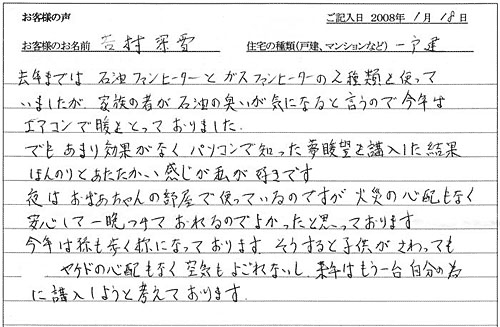 お客様の声 ご記入日 2008年 1月 18日
お客様のお名前 吉村 深雪 住宅の種類(戸建、マンションなど) 一戸建
去年までは 石油ファンヒーターと ガスファンヒーターの2種類を使って
いましたが、家族の者が 石油の臭いが気になると言うので今年は
エアコンで暖をとっておりました。
でも あまり効果がなく パソコンで知った夢暖望を購入した結果
ほんのりとあたたかい感じが私が好きです
夜は おばあちゃんの部屋で使っているのですが 火災の心配もなく
安心して一晩つけて おれるのでよかったと思っております
今年は孫も歩く称になっております。そうすると子供が さわっても
ヤケドの心配もなく 空気もよごれないし、来年はもう一台 自分の為
に購入しようと考えております。